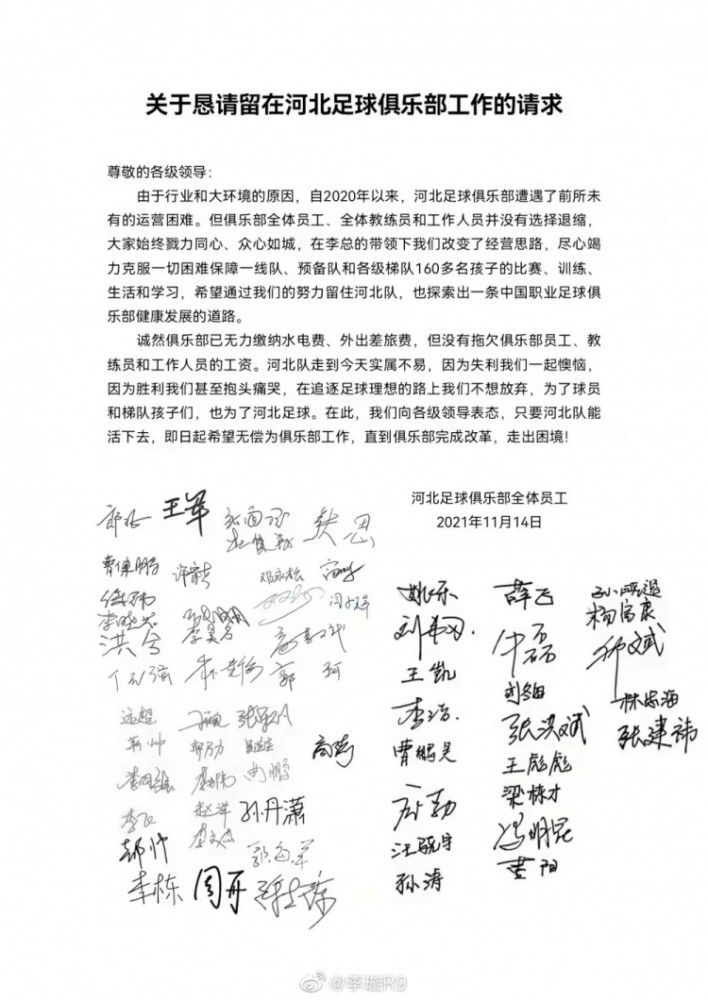 关于恳请留在河北足球俱乐部工作的请求
尊敬的各级领导：
由于行业和大环境的原因，自2020年以来，河北足球俱乐部遭遇了前所未
有的运营困难。但俱乐部全体员工、全体教练员和工作人员并没有选择退缩，
大家始终戮力同心、众心如城，在李总的带领下我们改变了经营思路，尽心竭
力克服一切困难保障一线队、预备队和各级梯队160多名孩子的比赛、训练、
生活和学习，希望通过我们的努力留住河北队，也探索出一条中国职业足球俱
乐部健康发展的道路。
诚然俱乐部已无力缴纳水电费、外出差旅费，但没有拖欠俱乐部员工、教
练员和工作人员的工资。河北队走到今天实属不易，因为失利我们一起懊恼，
因为胜利我们甚至抱头痛哭，在追逐足球理想的路上我们不想放弃，为了球员
和梯队孩子们，也为了河北足球。在此，我们向各级领导表态，只要河北队能
活下去，即日起希望无偿为俱乐部工作，直到俱乐部完成改革，走出困境！
河北足球俱乐部全体员工
2021年11月14日
王军
洪兮
郭珂
孙丹潇
李栋
周开
姚乐
王凯
李浩
曹鹏昊
孙涛
薛飞
牛磊
张洪斌
王彪彪
梁栋才
冯明昆
黄阳
杨富康
林忠海
张建祎
@李璇R9